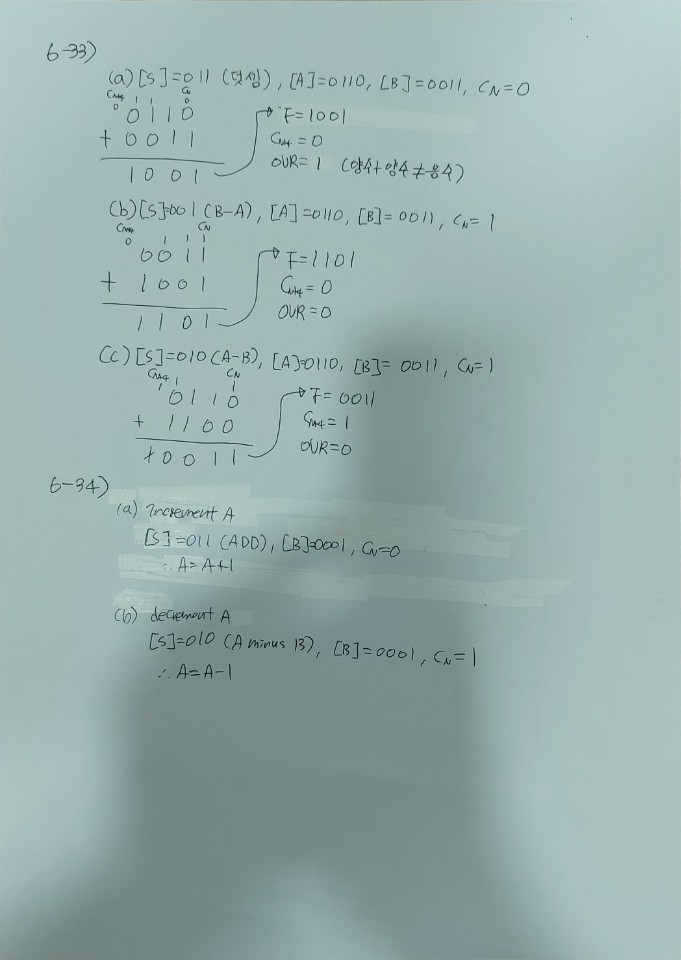 6-33)
(a) [S]=011 (덧셈), [A]=0110, [B]=0011, CN=0
CN+4 1 1 CN
0 0
0110
+ 0011
1001
F=1001
CN+4=0
OVR=1 (양수+양수≠음수)
(b) [S]=001 (B-A), [A]=0110, [B]=0011, CN=1
CN+4 CN
0 1 1 1
0011
+ 1001
1101
F=1101
CN+4=0
OVR=0
(C) [S]=010 (A-B), [A]=0110, [B]=0011, CN=1
CN+4 1 CN
1 1
0110
+ 1100
10011
F=0011
CN+4=1
OVR=0
6-34)
(a) Increment A
[S]=011 (ADD), [B]=0001, CN=0
∴ A=A+1
(b) decrement A
[S]=010 (A minus B), [B]=0001, CN=1
∴ A=A-1